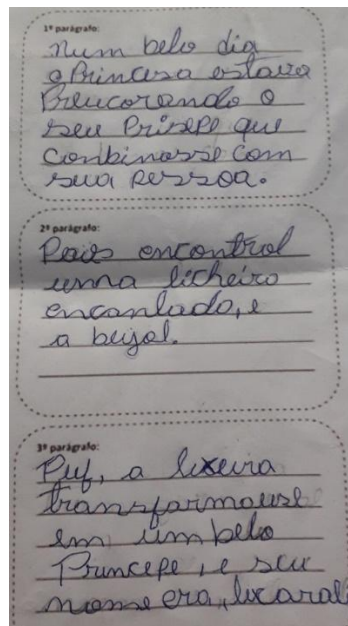 1º parágrafo:
Num belo dia
a Princesa estava
Preucorando o
seu Prisepe que
conbinasse com
sua pessoa.
2º parágrafo:
Pois encontrol
uma licheiro
encanlado, e
a beijol.
3º parágrafo:
Puf, a lixeira
transfarmouse
em um belo
Princepe, e seu
nome era, lixaral